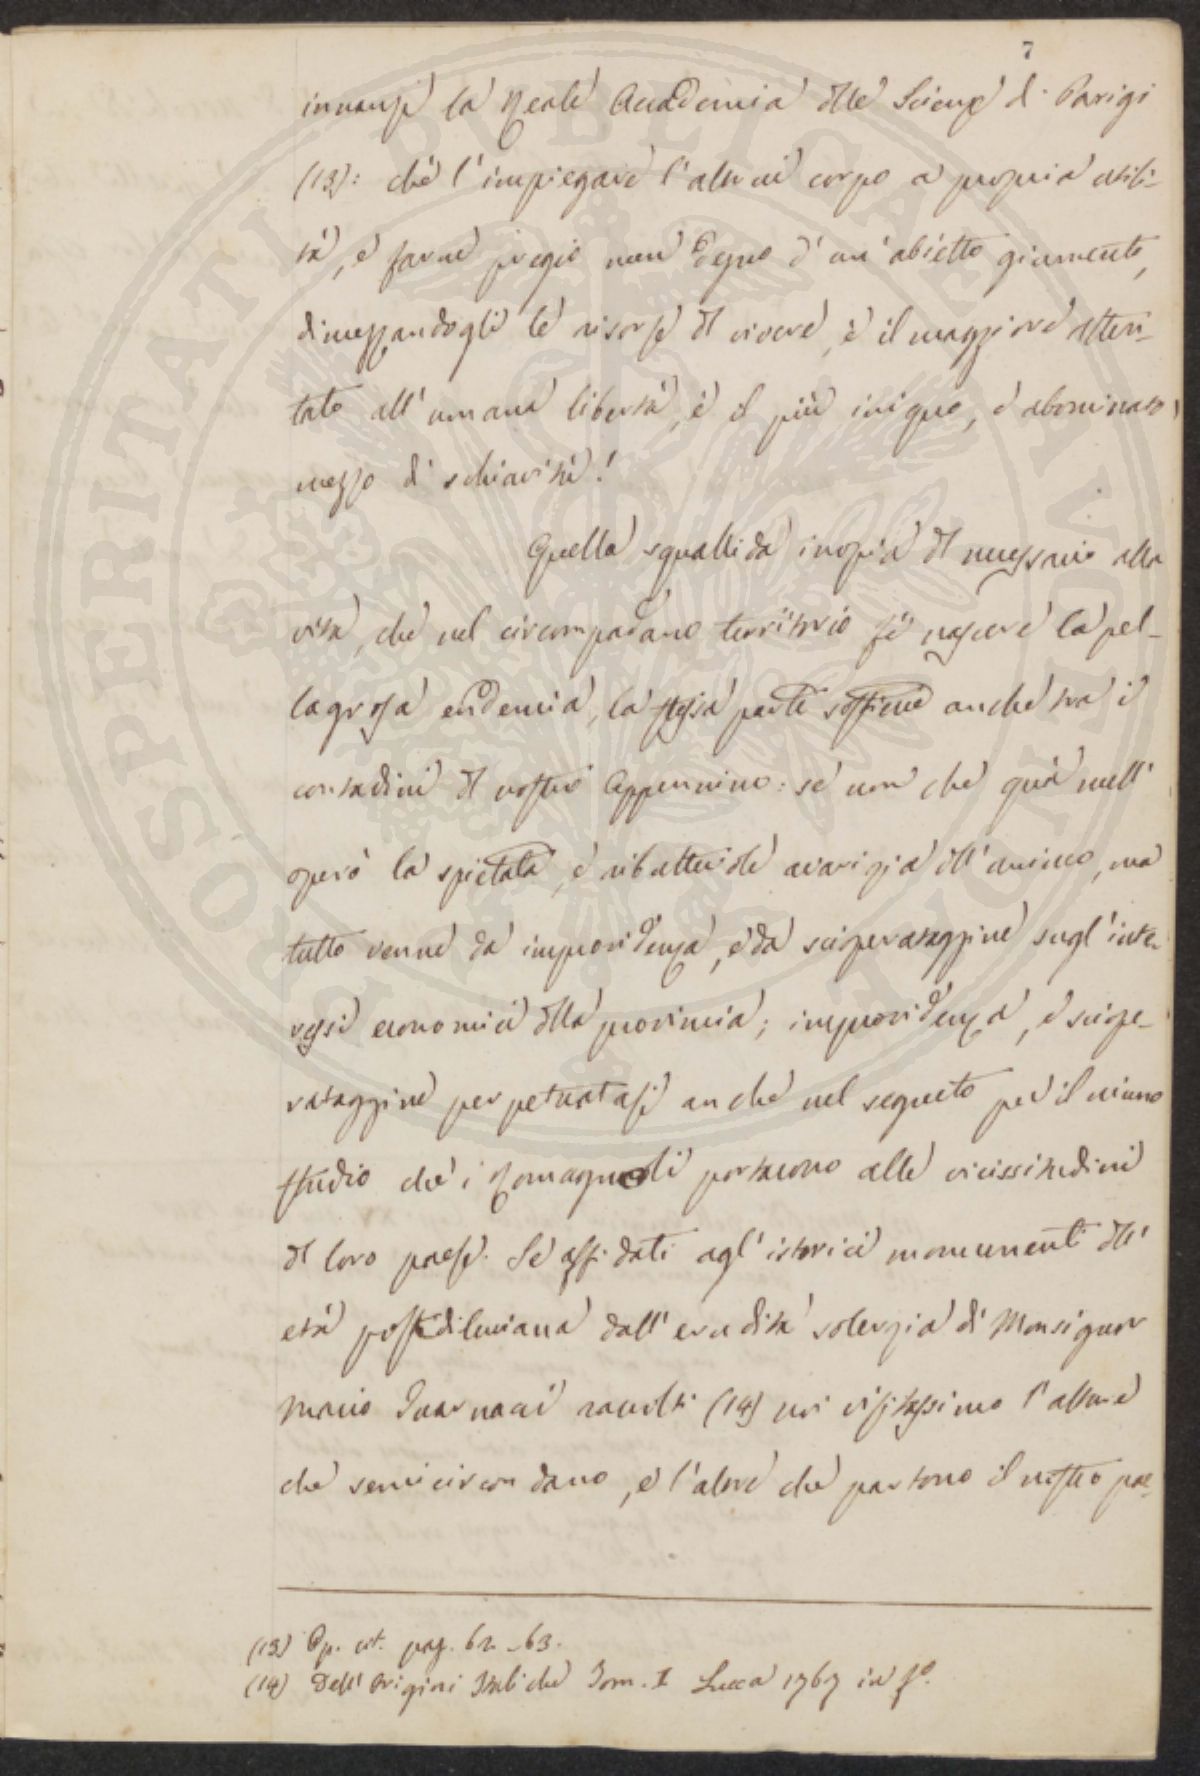 7
innanzi la Reale Accademia delle Scienze di Parigi
(13): che l'impiegare l'altrui corpo a propria utili-
tà, e farne pregio men degno d'un'abietto giumento,
dimezzandogli le risorse del vivere, è il maggiore atten-
tato all'umana libertà, è il più iniquo, e abominato
mezzo di schiavitù!
Quella squallida inopia del necessario alla
vita, che nel circompadano territorio fè nascere la pel-
lagrosa endemia, la stessa parte sostiene anche tra i
contadini del nostro Appennino: se non che quà null'
operò la spietata, e ributtevole avarizia dell'animo, ma
tutto venne da improvidenza, e da scioperataggine sugl'inte-
ressi economici della provincia; improvidenza, e sciope-
rataggine perpetuatasi anche nel segueto per il niuno
studio che i Romagnoli portarono alle vicissitudini
del loro paese. Se affidati agl'istorici monumenti dell'
età postdiluviana dall'erudita solerzia di Monsignor
Mario Guarnacci raccolti (14) noi visitassimo l'alture
che semicircondano, e l'altre che partono il nostro pae-
(13) Op. cit. pag. 62-63.
(14) Dell'Origini Italiche Tom. I Lucca 1767 in fo.